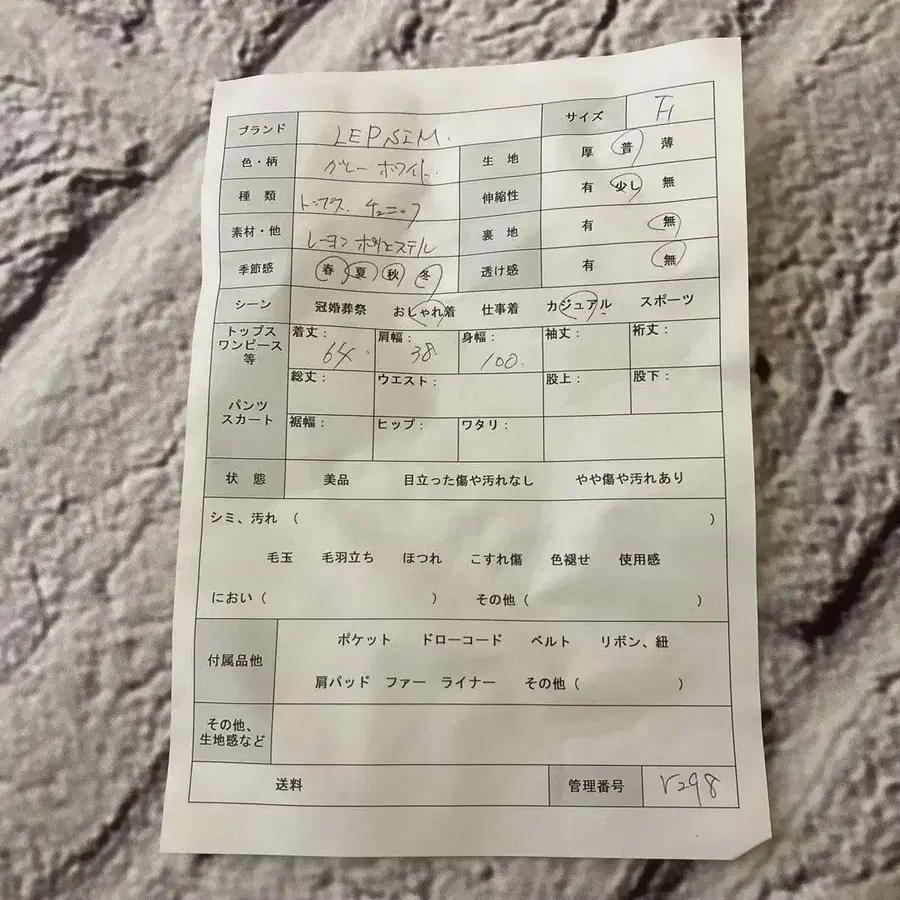 ブランド LEPSIM. サイズ F
色・柄 グレー ホワイト. 生地 厚 普 薄
種類 トップス. チュニック 伸縮性 有 少し 無
素材・他 レーヨン ポリエステル 裏地 有 無
季節感 春 夏 秋 冬 透け感 有 無
シーン 冠婚葬祭 おしゃれ着 仕事着 カジュアル スポーツ
トップス
ワンピース
等
着丈: 64. 肩幅: 38 身幅: 100. 袖丈: 裄丈:
パンツ
スカート
総丈: ウエスト: 股上: 股下:
裾幅: ヒップ: ワタリ:
状態 美品 目立った傷や汚れなし やや傷や汚れあり
シミ、汚れ ( )
毛玉 毛羽立ち ほつれ こすれ傷 色褪せ 使用感
におい ( ) その他 ( )
付属品他 ポケット ドローコード ベルト リボン、紐
肩パッド ファー ライナー その他 ( )
その他、
生地感など
送料 管理番号 r298